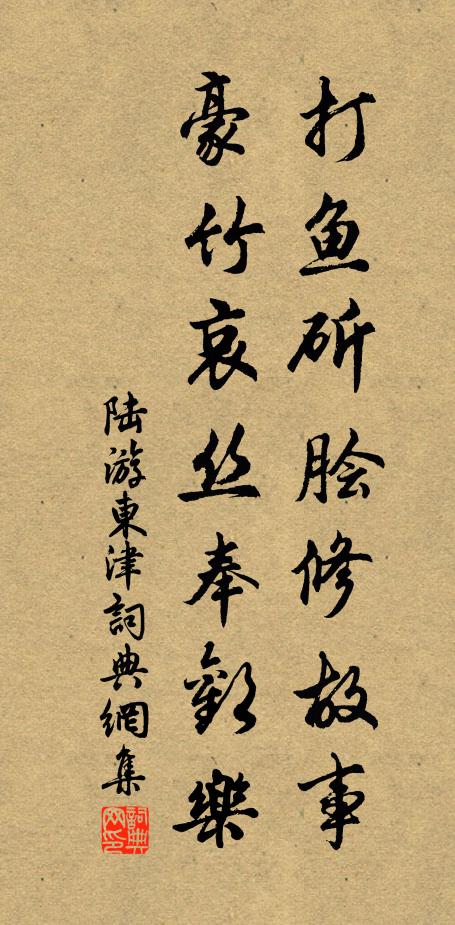 打鱼斫脍修故事
豪竹哀丝奉歡樂
陆游東津詞典網集
詞典网印